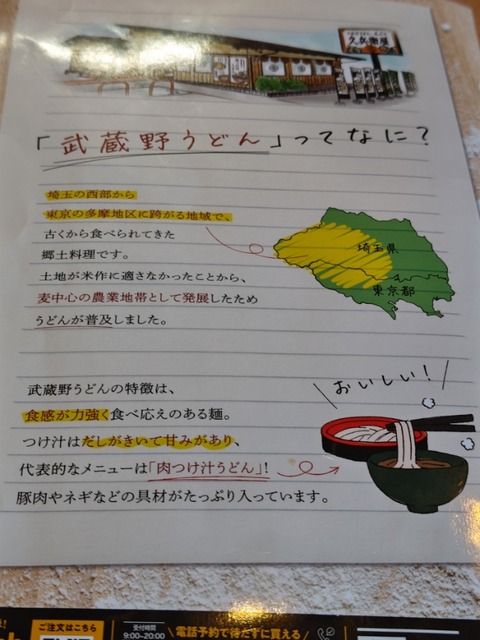 久兵衛屋
「武蔵野うどん」ってなに?
埼玉の西部から
東京の多摩地区に跨がる地域で、
古くから食べられてきた
郷土料理です。
土地が米作に適さなかったことから、
麦中心の農業地帯として発展したため
うどんが普及しました。
埼玉県
東京都
武蔵野うどんの特徴は、
食感が力強く食べ応えのある麺。
つけ汁はだしがきいて甘みがあり、
代表的なメニューは「肉つけ汁うどん」!
豚肉やネギなどの具材がたっぷり入っています。
おいしい!
ご注文はこちら
受付時間
9:00~20:00
電話予約で待たずに買える